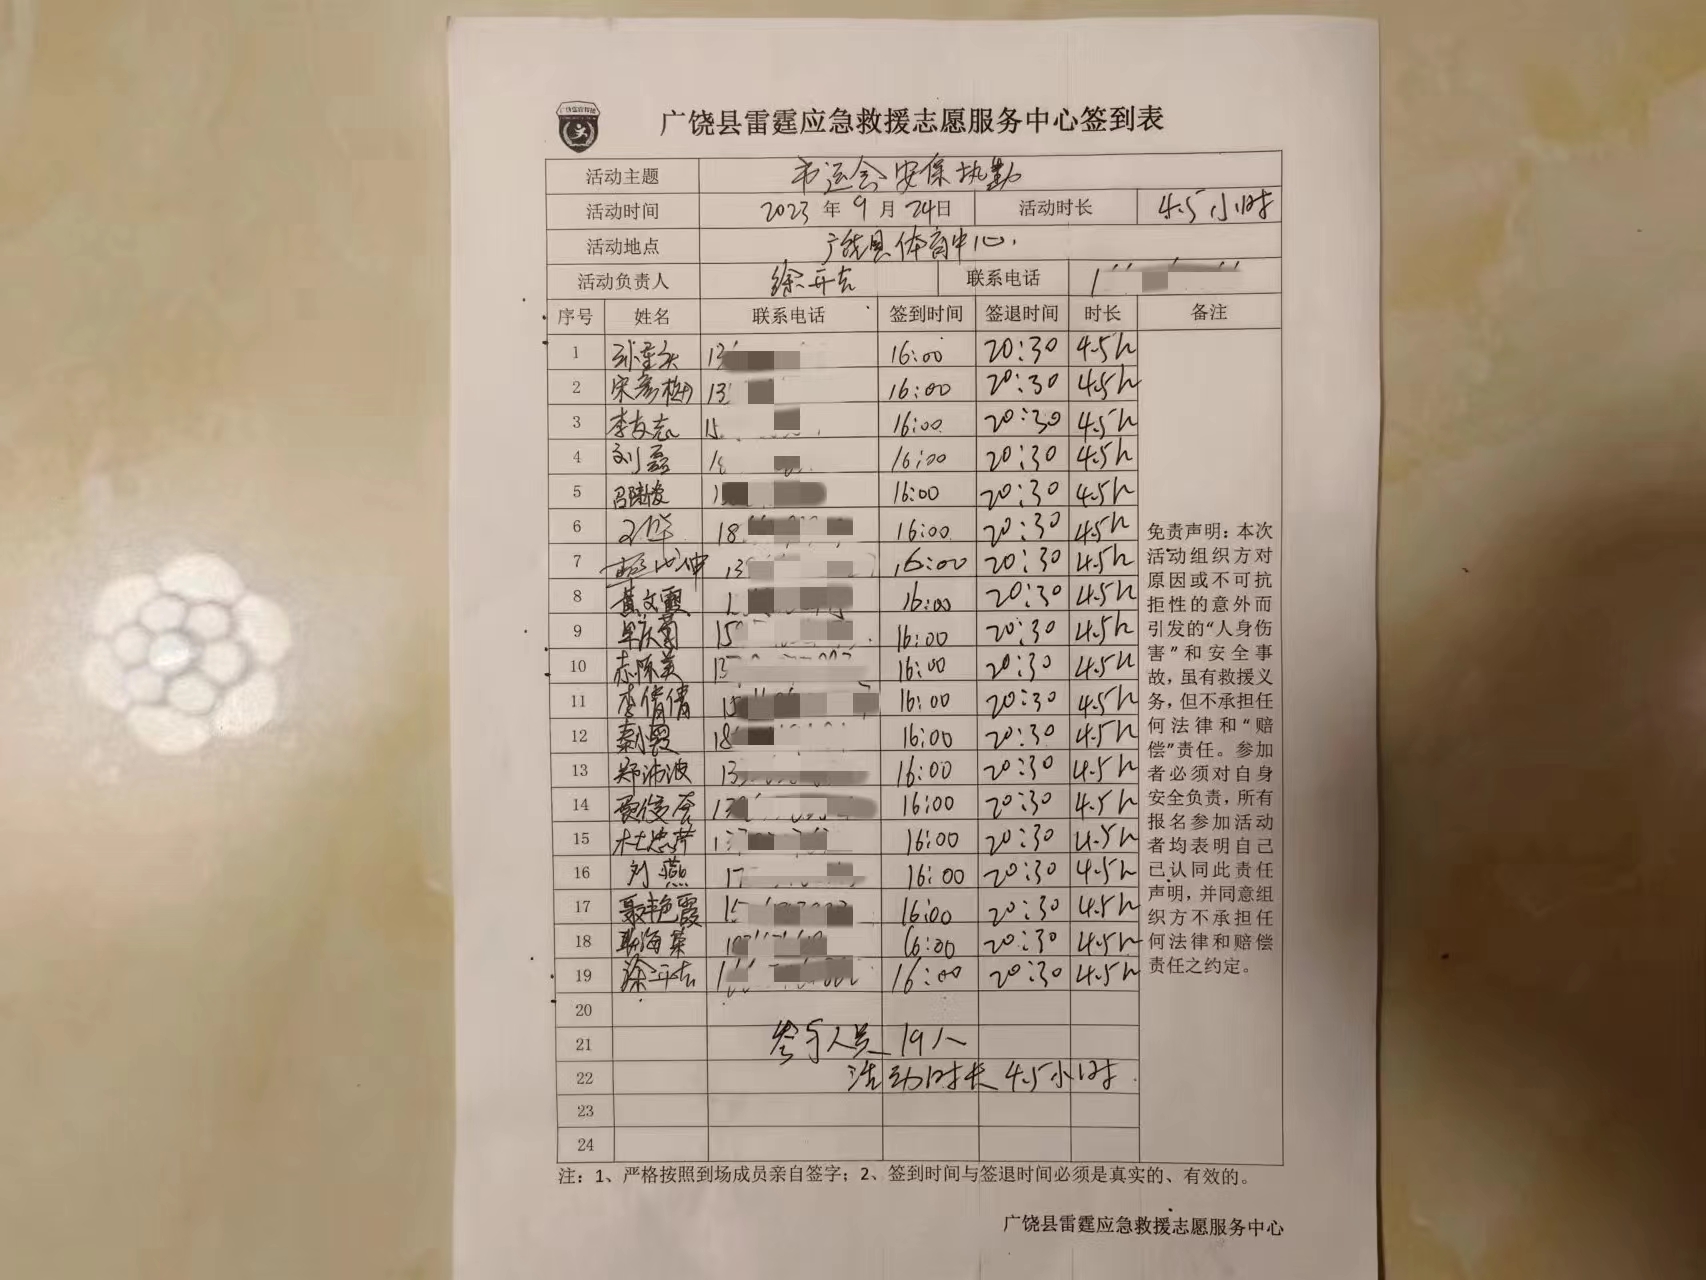 广饶县雷霆应急救援志愿服务中心签到表
活动主题 市运会安保执勤
活动时间 2023年9月24日 活动时长 4.5小时
活动地点 广饶县体育中心.
活动负责人 联系电话 1
序号 姓名 联系电话 签到时间 签退时间 时长 备注
1 13 16:00 20:30 4.5h
2 宋彦梅 13 16:00 20:30 4.5h
3 李友志 15 16:00 20:30 4.5h
4 刘磊 16:00 20:30 4.5h
5 16:00 20:30 4.5h
6 18 16:00 20:30 4.5h
7 13 16:00 20:30 4.5h
8 黄文霞 1 16:00 20:30 4.5h
9 15 16:00 20:30 4.5h
10 13 16:00 20:30 4.5h
11 李倩倩 15 16:00 20:30 4.5h
12 18 16:00 20:30 4.5h
13 郑沛波 13 16:00 20:30 4.5h
14 13 16:00 20:30 4.5h
15 13 16:00 20:30 4.5h
16 刘燕 17 16:00 20:30 4.5h
17 聂艳霞 15 16:00 20:30 4.5h
18 16:00 20:30 4.5h
19 1 16:00 20:30 4.5h
20
21 参与人员 19人
22 活动时长 4.5小时
23
24
免责声明：本次
活动组织方对
原因或不可抗
拒性的意外而
引发的“人身伤
害”和安全事
故，虽有救援义
务，但不承担任
何法律和“赔
偿”责任。参加
者必须对自身
安全负责，所有
报名参加活动
者均表明自己
已认同此责任
声明，并同意组
织方不承担任
何法律和赔偿
责任之约定。
注：1、严格按照到场成员亲自签字；2、签到时间与签退时间必须是真实的、有效的。
广饶县雷霆应急救援志愿服务中心